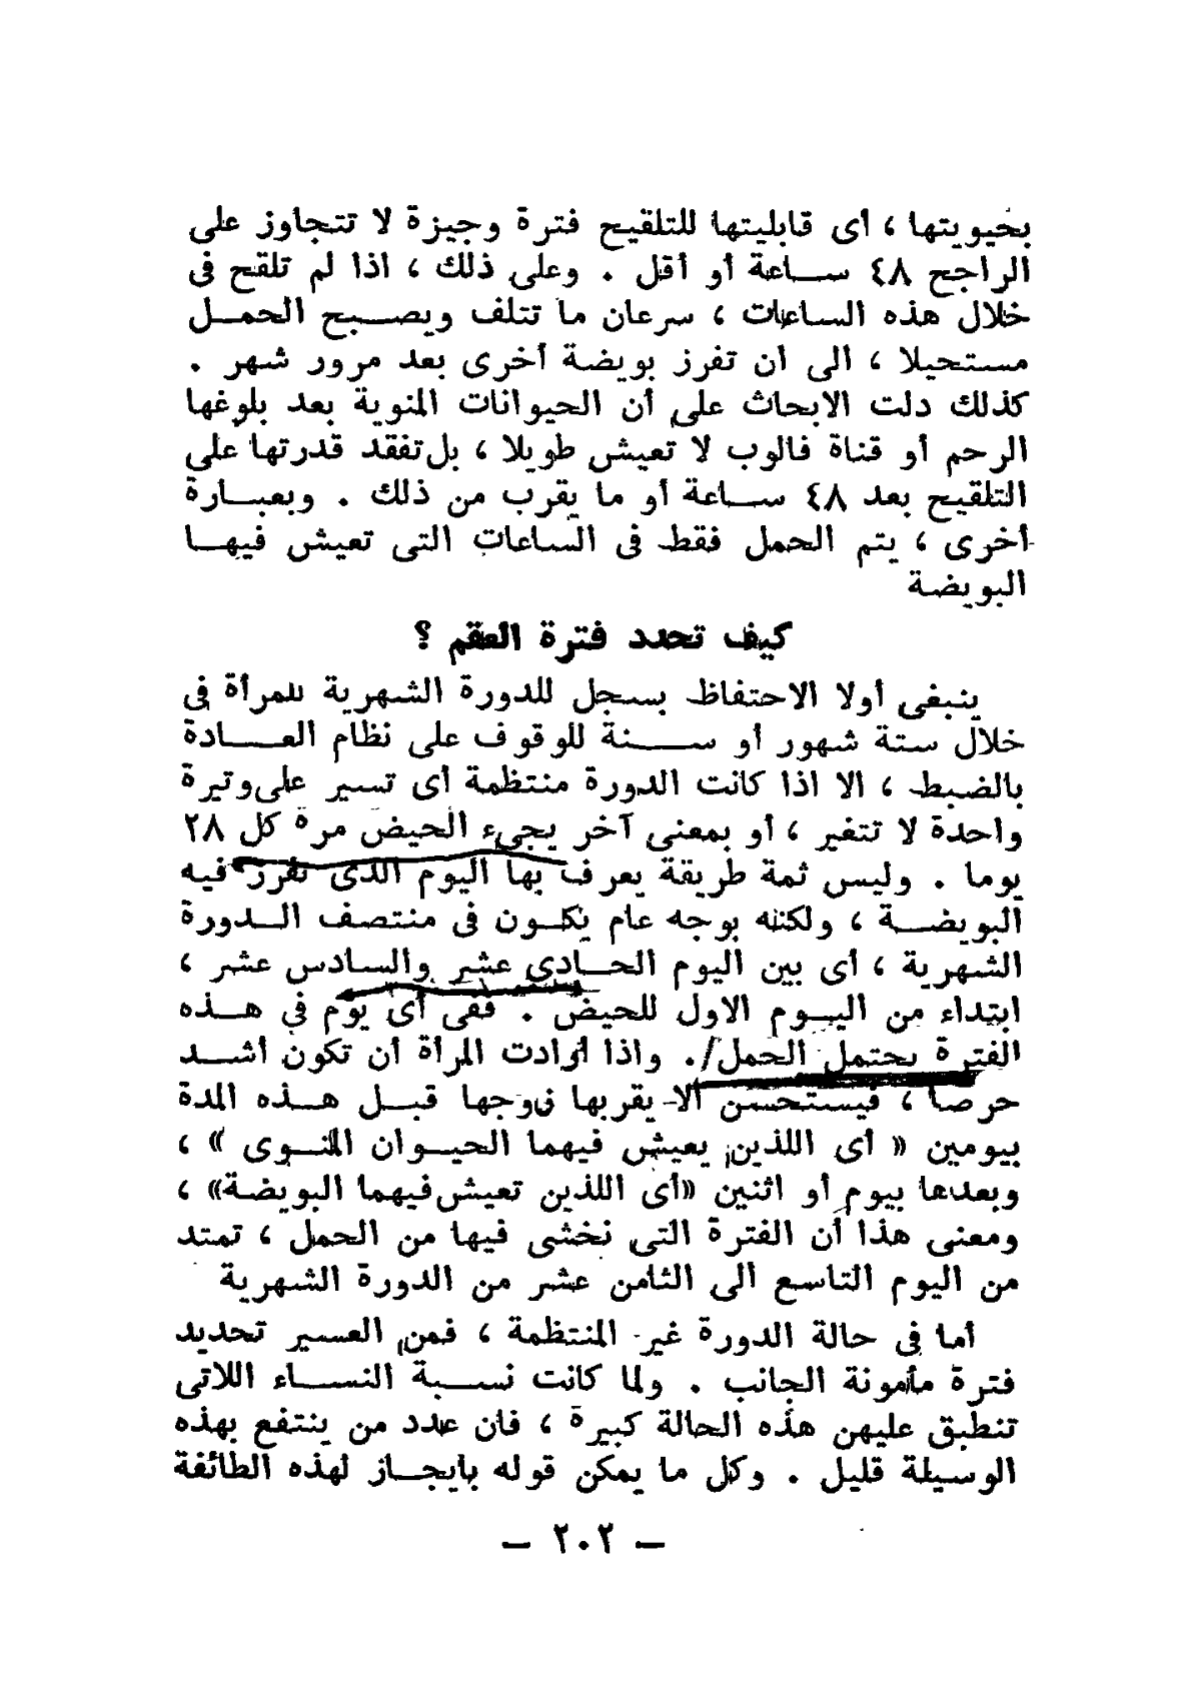 بحيويتها ، أى قابليتها للتلقيح فترة وجيزة لا تتجاوز على
الراجح ٤٨ ساعة أو أقل . وعلى ذلك ، اذا لم تلقح فى
خلال هذه الساعات ، سرعان ما تتلف ويصبح الحمل
مستحيلا ، الى أن تفرز بويضة أخرى بعد مرور شهر .
كذلك دلت الابحاث على أن الحيوانات المنوية بعد بلوغها
الرحم أو قناة فالوب لا تعيش طويلا ، بل تفقد قدرتها على
التلقيح بعد ٤٨ ساعة أو ما يقرب من ذلك . وبعبارة
أخرى ، يتم الحمل فقط فى الساعات التى تعيش فيها
البويضة
كيف تحدد فترة العقم ؟
ينبغى أولا الاحتفاظ بسجل للدورة الشهرية للمرأة فى
خلال ستة شهور أو سنة للوقوف على نظام العادة
بالضبط ، الا اذا كانت الدورة منتظمة أى تسير على وتيرة
واحدة لا تتغير ، أو بمعنى آخر يجىء الحيض مرة كل ٢٨
يوما . وليس ثمة طريقة يعرف بها اليوم الذى تفرز فيه
البويضة ، ولكنه بوجه عام يكون فى منتصف الدورة
الشهرية ، أى بين اليوم الحادى عشر والسادس عشر ،
ابتداء من اليوم الاول للحيض . ففى أى يوم فى هذه
الفترة يحتمل الحمل . واذا أرادت المرأة أن تكون أشد
حرصا ، فيستحسن ألا يقربها زوجها قبل هذه المدة
بيومين « أى اللذين يعيش فيهما الحيوان المنوى » ،
وبعدها بيوم أو اثنين «أى اللذين تعيش فيهما البويضة» ،
ومعنى هذا أن الفترة التى نخشى فيها من الحمل ، تمتد
من اليوم التاسع الى الثامن عشر من الدورة الشهرية
أما فى حالة الدورة غير المنتظمة ، فمن العسير تحديد
فترة مأمونة الجانب . ولما كانت نسبة النساء اللاتى
تنطبق عليهن هذه الحالة كبيرة ، فان عدد من ينتفع بهذه
الوسيلة قليل . وكل ما يمكن قوله بايجاز لهذه الطائفة
— ٢٠٢ —